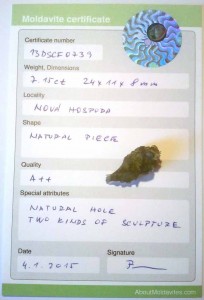 Moldavite certificate
Certificate number
93DSCF0739
Weight, Dimensions
7.15ct 24x11x8mm
Locality
NOVÁ HOSPODA
Shape
NATURAL PIECE
Quality
A++
Special attributes
NATURAL HOLE
TWO KINDS OF SCULPTURE
Date
Signature
4.1.2015
AboutMoldavites.com